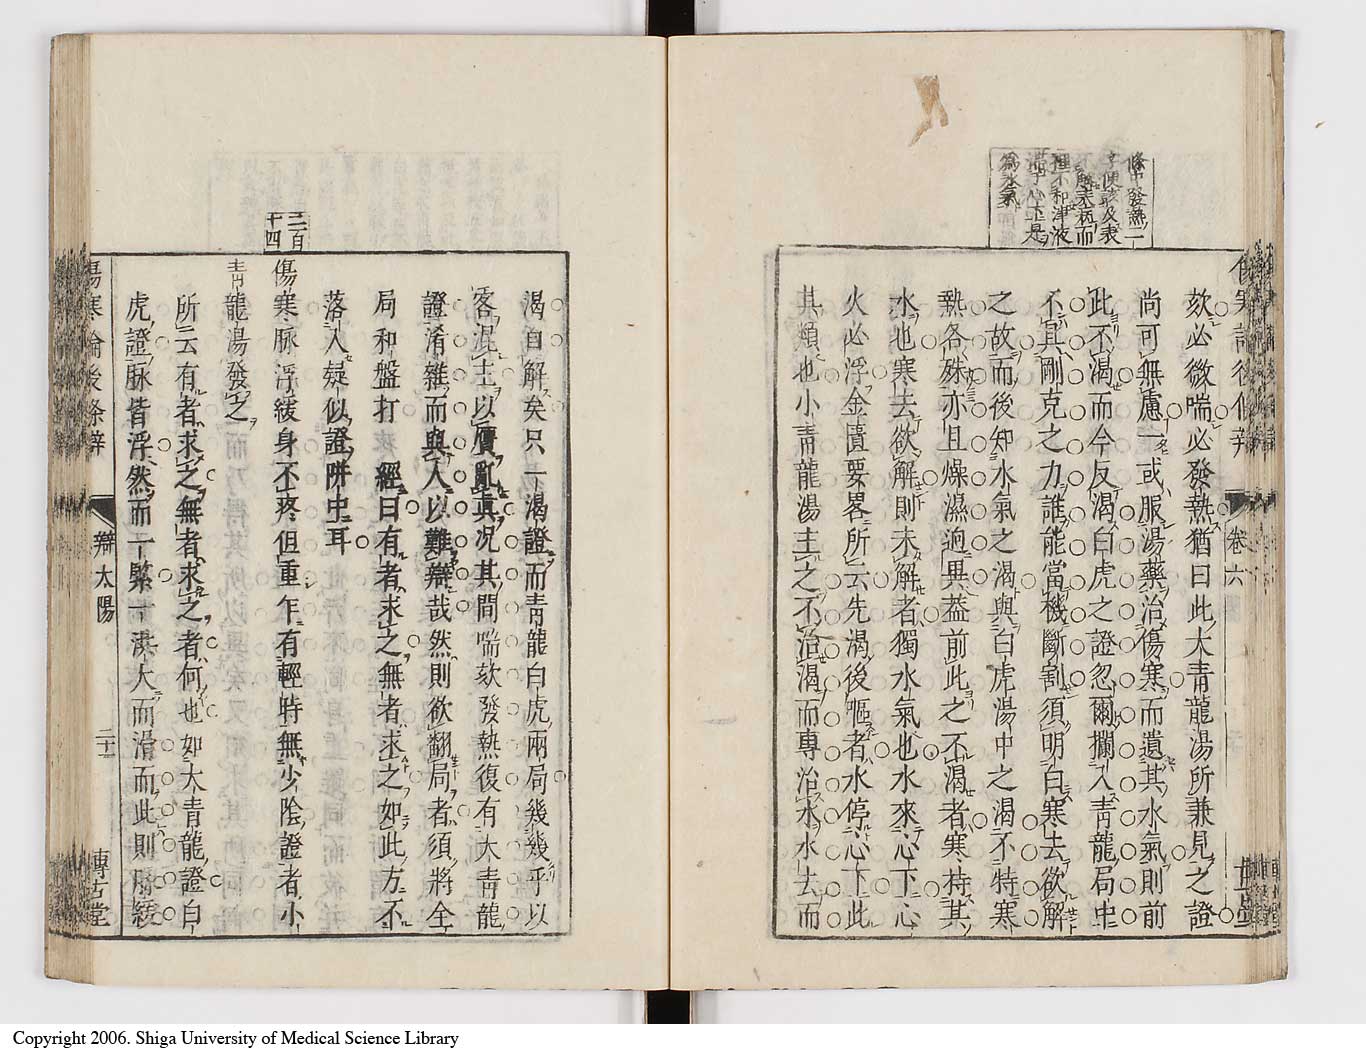 條中發熱二
字便該及表
不解表病而
裡不和津液
滞于心下是
爲水氣
欬必微喘必發熱猶曰此大青龍湯所兼見之證
尚可無慮一或服湯藥治傷寒而遺其水氣則前
此不渴而今反渴白虎之證忽爾攔入青龍局中
不具剛克之力誰能當機斷割須明白寒去欲解
之故而後知水氣之渴與白虎湯中之渴不特寒
熱各殊亦且燥濕迥異葢前此之不渴者寒持其
水也寒去欲解則未解者獨水氣也水來心下心
火必浮金匱要畧所云先渴後嘔者水停心下此
其類也小青龍湯主之不治渴而專治水水去而
卷六
渴自解矣只一渴證而青龍白虎兩局幾幾乎以
客混主以贋亂真况其間喘欬發熱復有大青龍
證淆雜而與人以難辯哉然則欲翻局者須將全
局和盤打 經曰有者求之無者求之如此方不
落入疑似證阱中耳
三百
十四
傷寒脉浮緩身不疼但重乍有輕時無少陰證者小
青龍湯發之
所云有者求之無者求之者何也如大青龍證白
虎證脉皆浮然而一緊一洪大而滑而此則脉緩
傷寒論後條辨
辯太陽
二十二
博古堂
Copyright 2006. Shiga University of Medical Science Library